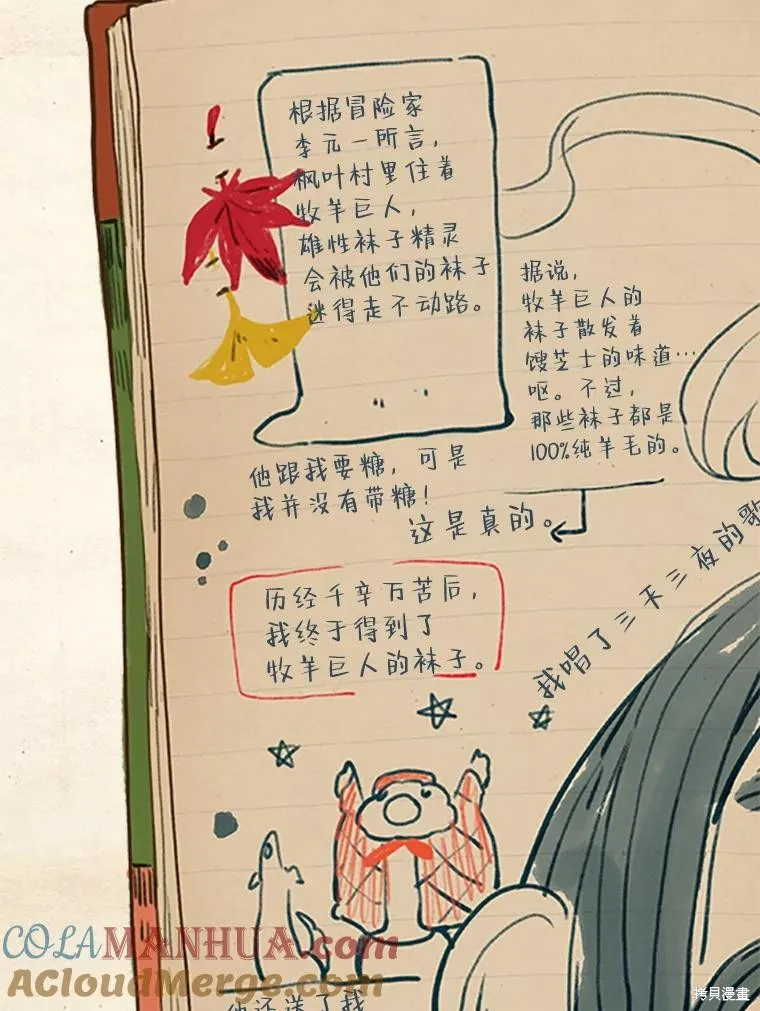 根据冒险家
李元一所言，
枫叶村里住着
牧羊巨人，
雄性袜子精灵
会被他们的袜子
迷得走不动路。
据说，
牧羊巨人的
袜子散发着
馊芝士的味道…
呕。不过，
那些袜子都是
100%纯羊毛的。
他跟我要糖，可是
我并没有带糖！
这是真的。
我唱了三天三夜的歌
历经千辛万苦后，
我终于得到了
牧羊巨人的袜子。
COLAMANHUA.com
ACloudMerge.com
他还送了我
拷貝漫畫